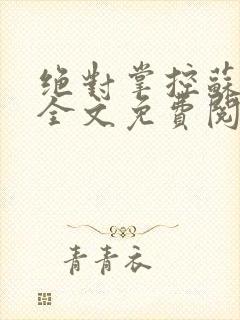 絕對掌控蘇
全文免費閱
青青衣